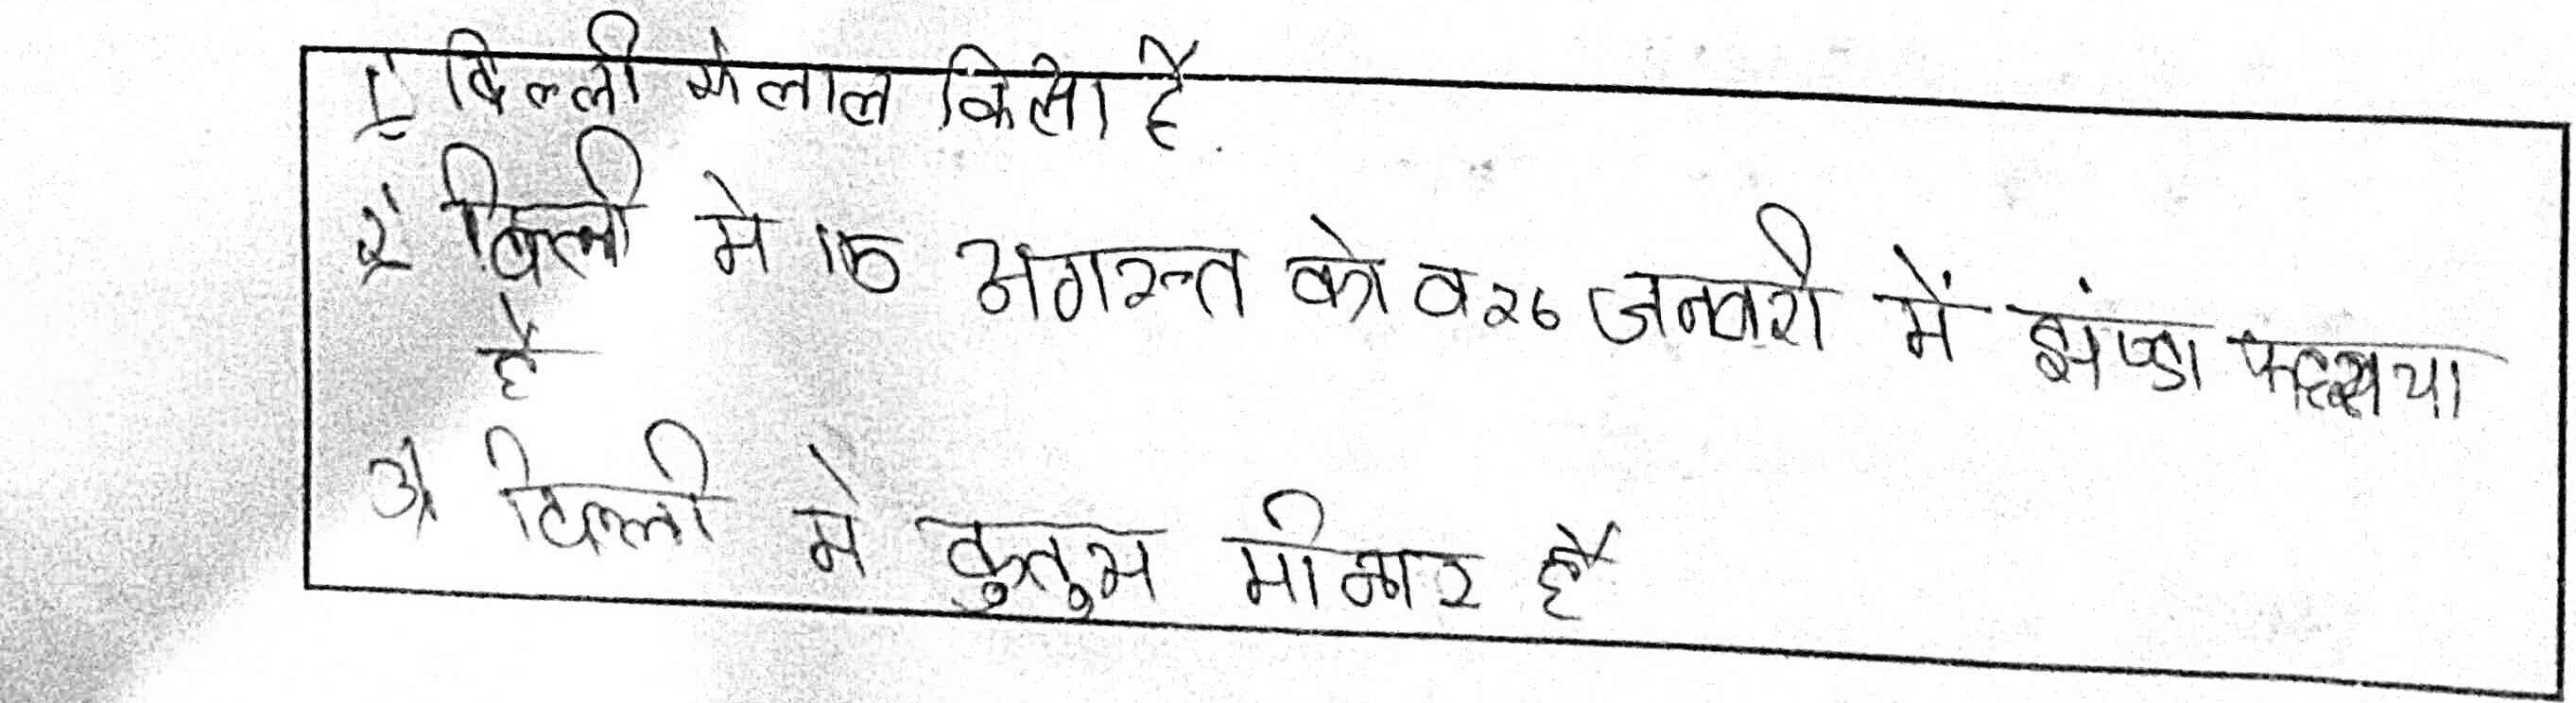 1 दिल्ली मे लाल किला है.
2 दिल्ली मे 15 अगस्त को व 26 जनवरी में झंण्डा
है
3 दिल्ली मे कुतुम मीनार है